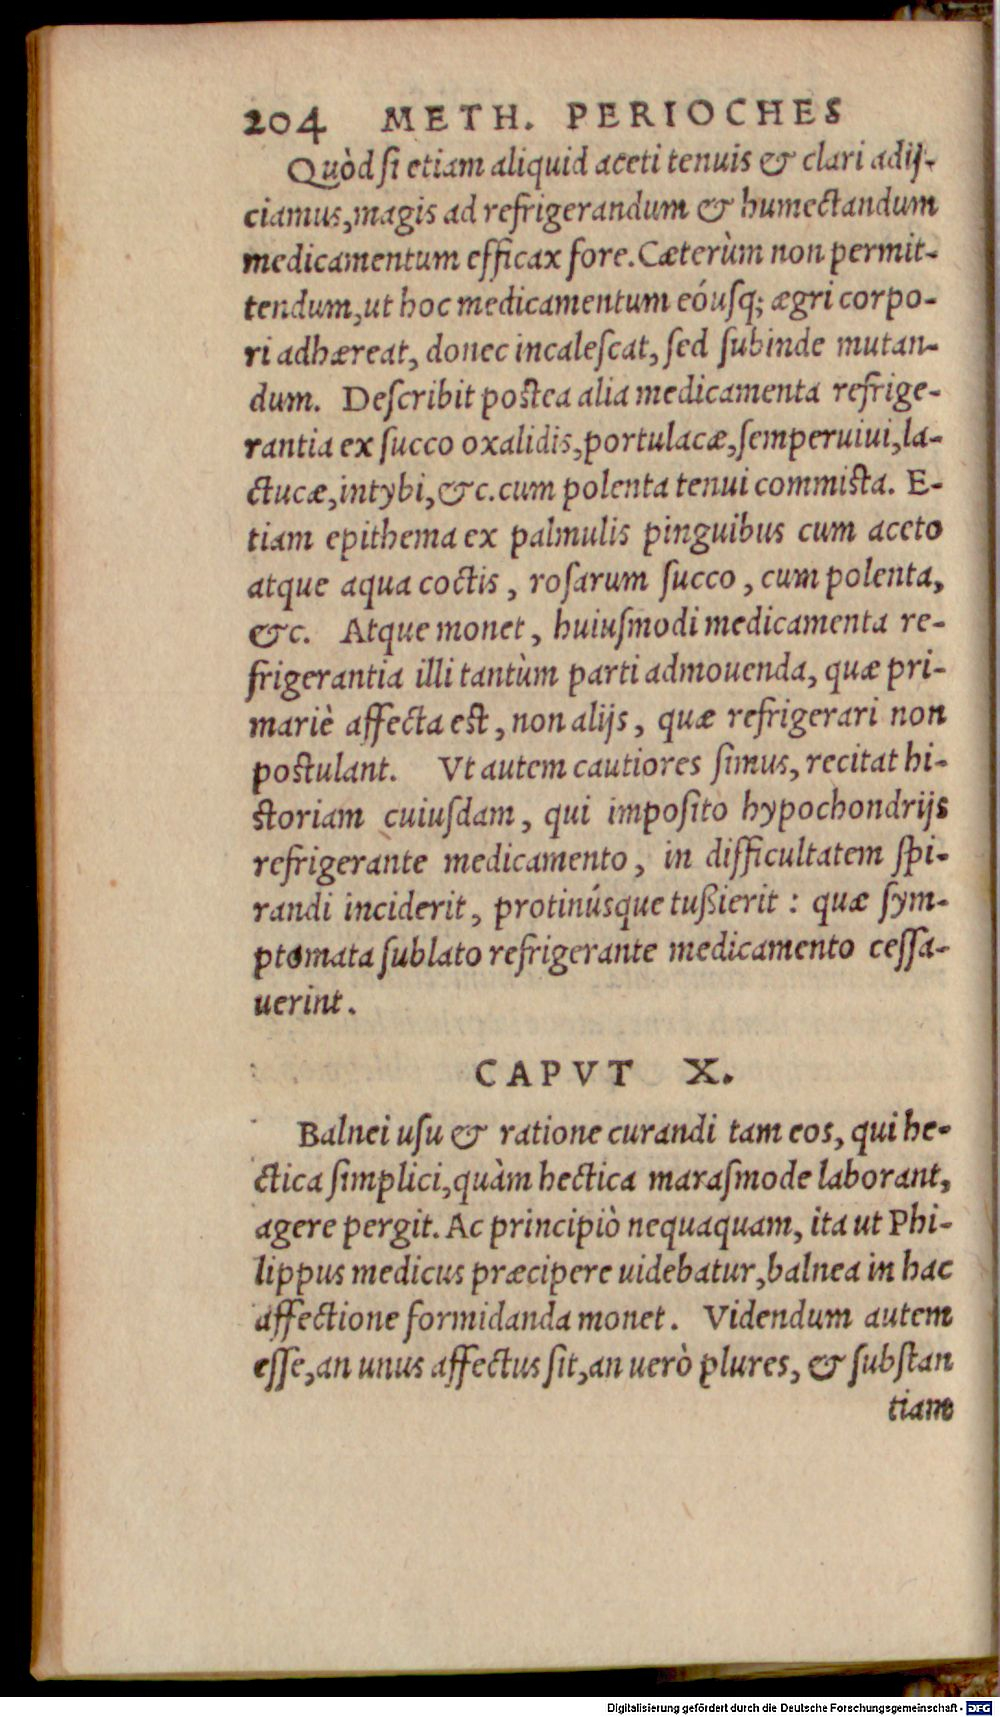 204 METH. PERIOCHES
Quòd ſi etiam aliquid aceti tenuis & clari adij-
ciamus, magis ad refrigerandum & humectandum
medicamentum efficax fore. Cæterùm non permit-
tendum, ut hoc medicamentum eóuſq; ægri corpo-
ri adhæreat, donec incaleſcat, ſed ſubinde mutan-
dum. Deſcribit postea alia medicamenta refrige-
rantia ex ſucco oxalidis, portulacæ, ſemperuiui, la-
ctucæ, intybi, &c. cum polenta tenui commista. E-
tiam epithema ex palmulis pinguibus cum aceto
atque aqua coctis, roſarum ſucco, cum polenta,
&c. Atque monet, huiuſmodi medicamenta re-
frigerantia illi tantùm parti admouenda, quæ pri-
mariè affecta est, non alijs, quæ refrigerari non
postulant. Vt autem cautiores ſimus, recitat hi-
storiam cuiuſdam, qui impoſito hypochondrijs
refrigerante medicamento, in difficultatem ſpi-
randi inciderit, protinúsque tußierit: quæ ſym-
ptomata ſublato refrigerante medicamento ceſſa-
uerint.
CAPVT X.
Balnei uſu & ratione curandi tam eos, qui he-
ctica ſimplici, quàm hectica maraſmode laborant,
agere pergit. Ac principiò nequaquam, ita ut Phi-
lippus medicus præcipere uidebatur, balnea in hac
affectione formidanda monet. Videndum autem
eſſe, an unus affectus ſit, an uerò plures, & ſubſtan
tiam
Digitalisierung gefördert durch die Deutsche Forschungsgemeinschaft - DFG